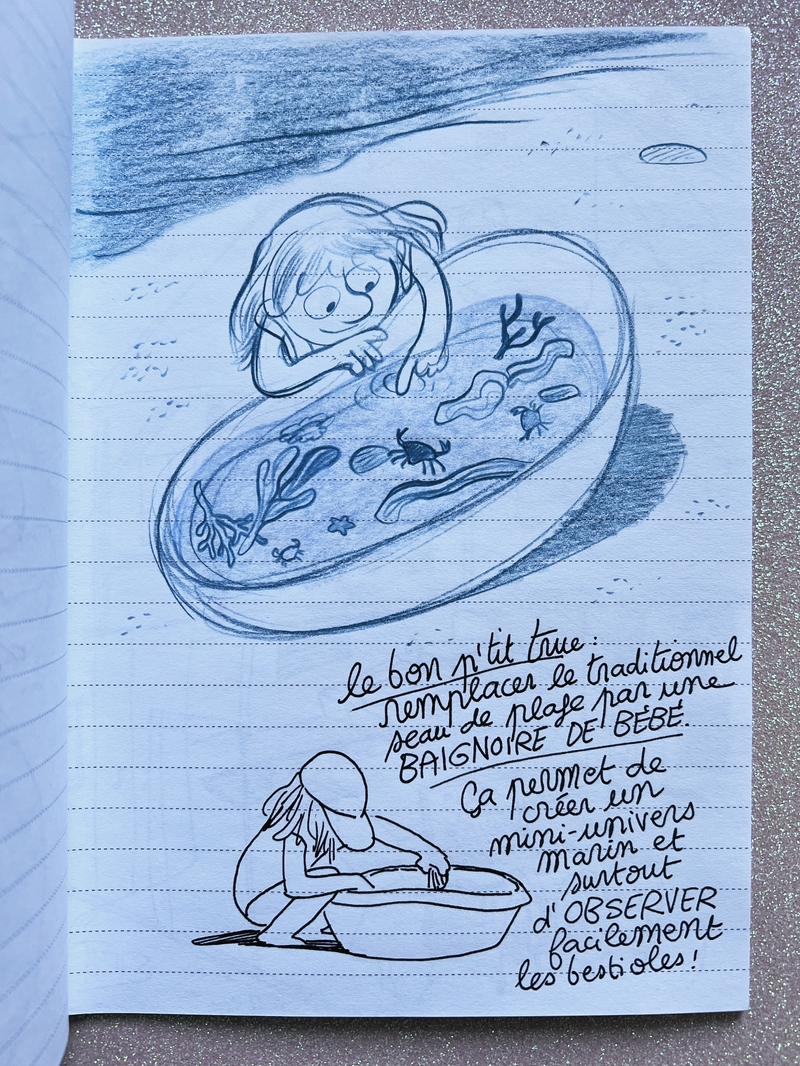 le bon p'tit truc :
remplacer le traditionnel
seau de plage par une
BAIGNOIRE DE BÉBÉ.
Ça permet de
créer un
mini-univers
marin et
surtout
d'OBSERVER
facilement
les bestioles !